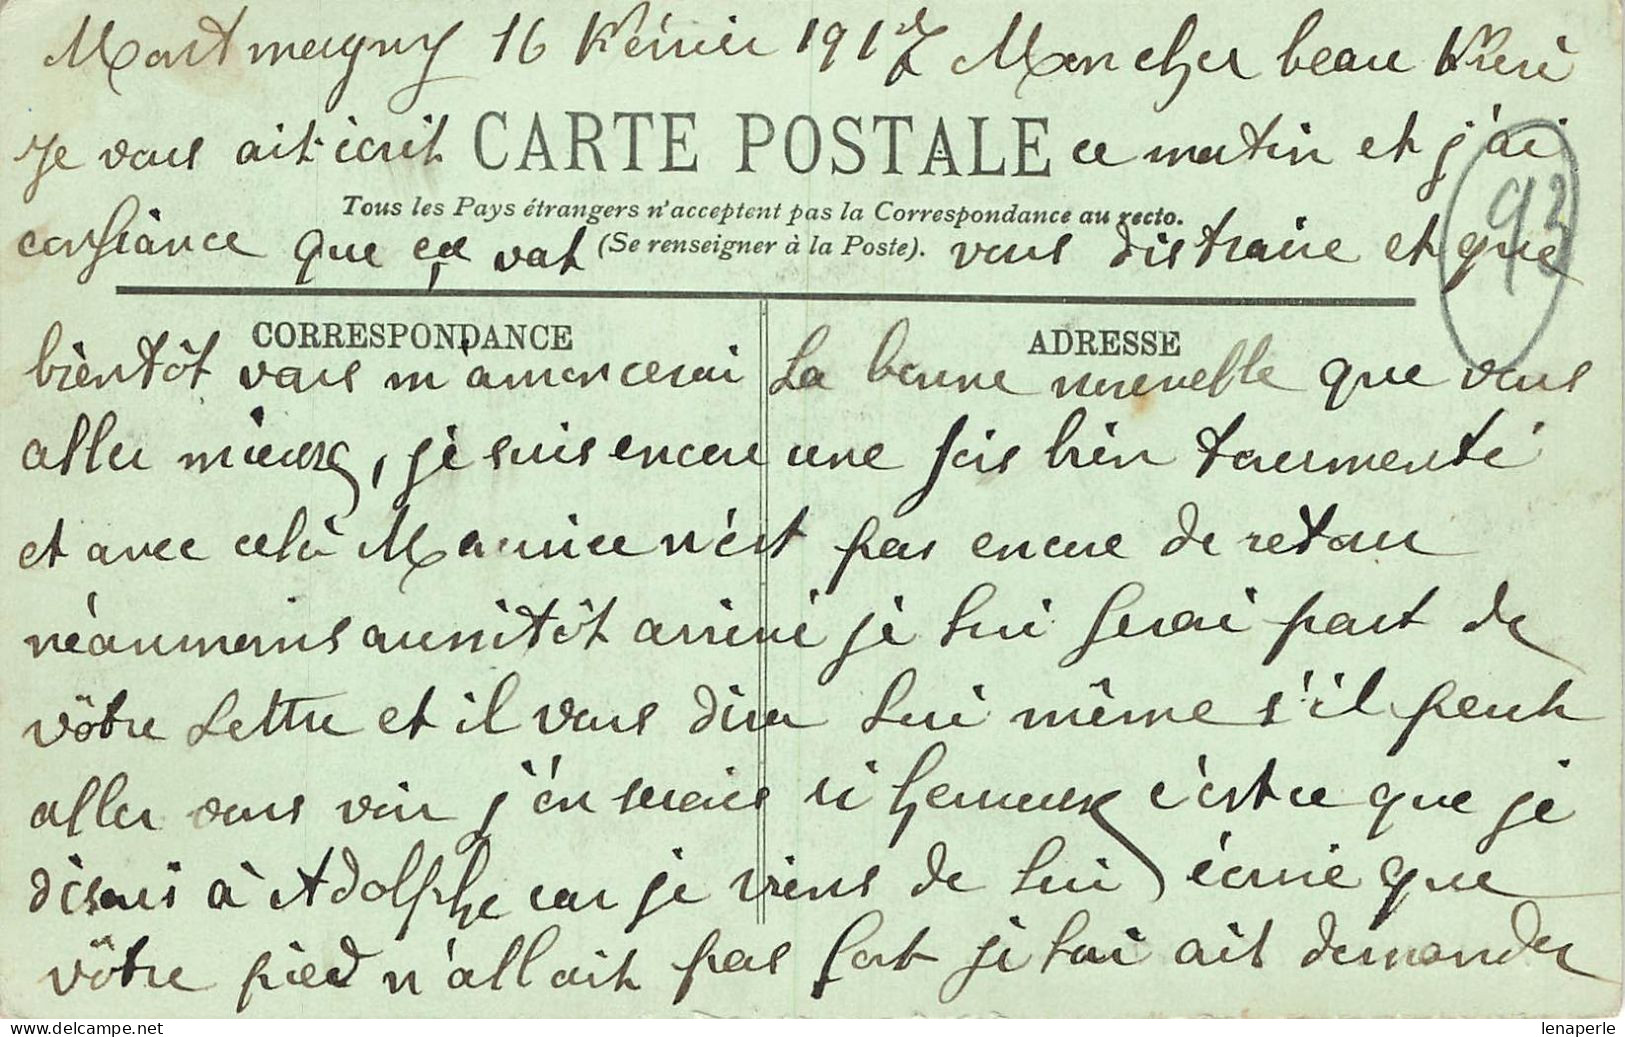 Montmagny 16 Février 1917 Mon cher beau Frère
Je vous ait écrit CARTE POSTALE ce matin et j'ai
93
Tous les Pays étrangers n'acceptent pas la Correspondance au recto.
confiance que ça vat (Se renseigner à la Poste). vous distraire et que
CORRESPONDANCE ADRESSE
bientôt vous m'amoncerai La bonne nouvelle que vous
aller mieux, je suis encore une fois bien tourmenté
et avec celà Maurice n'est pas encore de retour
néaumoins aussitôt arrivé je lui ferai part de
vôtre Lettre et il vous dira lui même s'il peut
aller vous voir j'én serais si heureux c'est ce que je
disais à Adolphe car je viens de lui écrire que
vôtre pied n'allait pas fort je lui ait demander
© delcampe.net
lenaperle